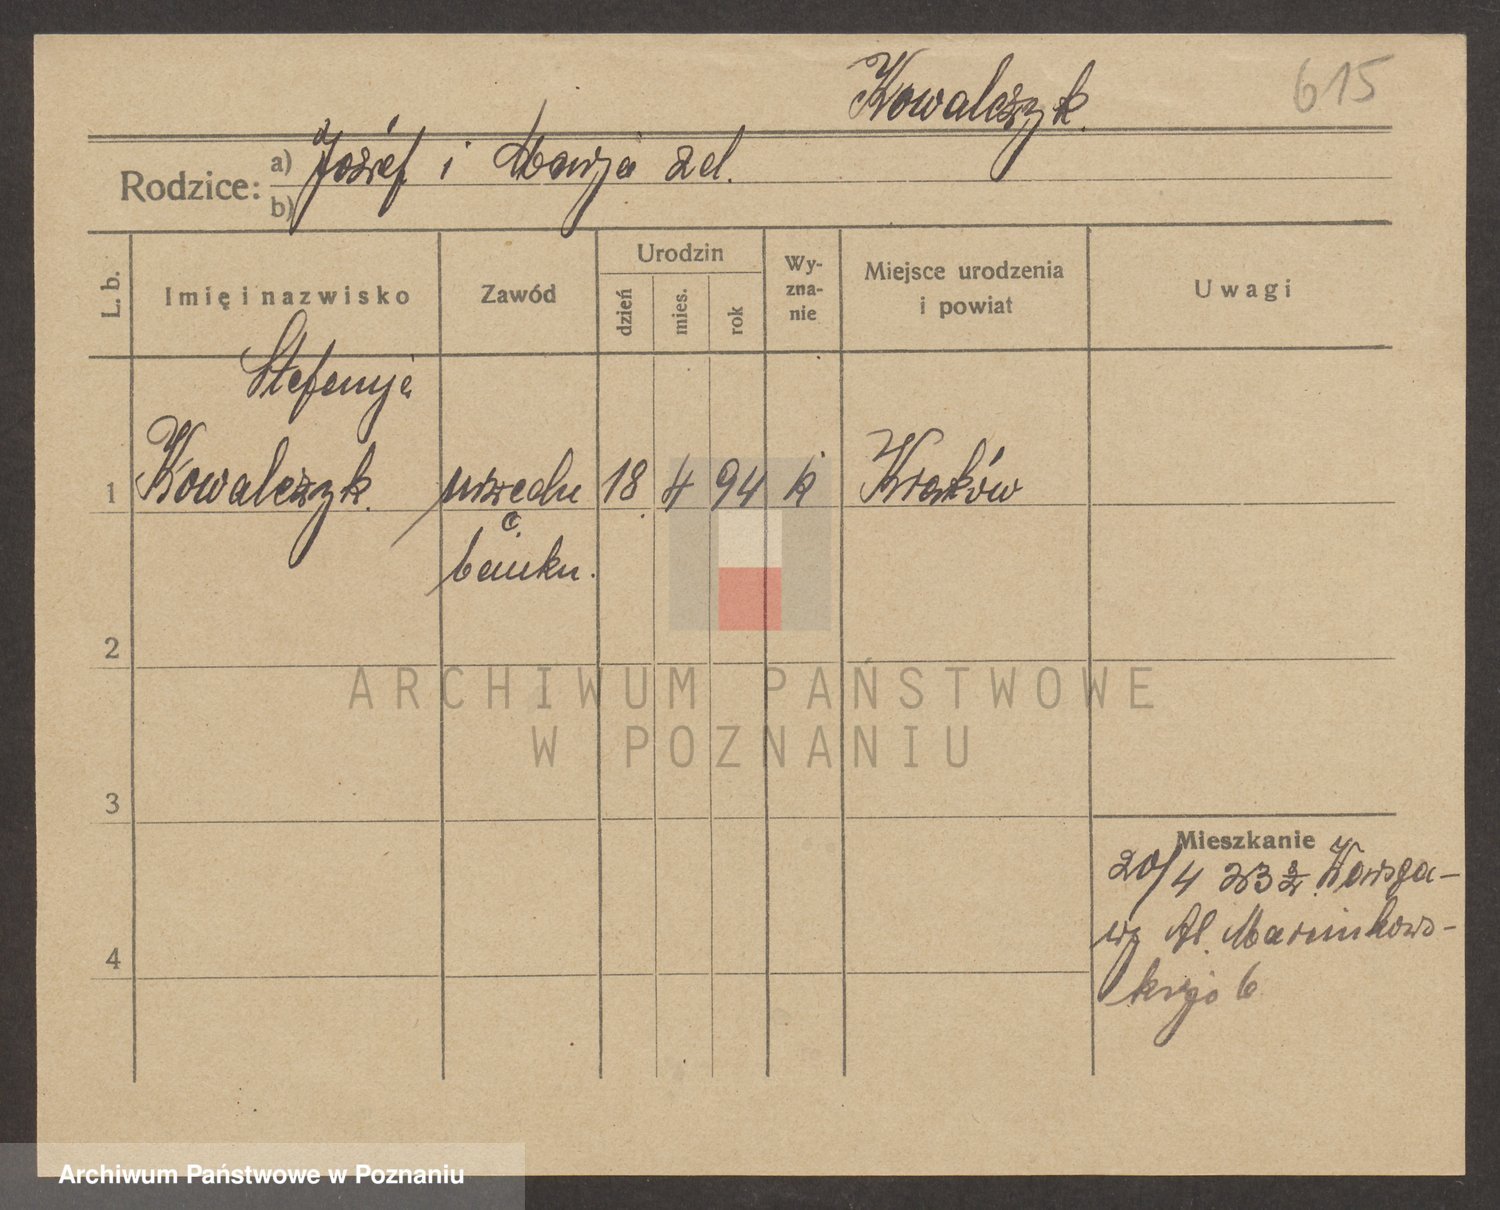 Kowalczyk
615
Rodzice: a) Józef i Marja zd.
b)
L. b.
Imię i nazwisko
Zawód
Urodzin
dzień
mies.
rok
Wy-
zna-
nie
Miejsce urodzenia
i powiat
Uwagi
Stefanja
1 Kowalczyk urzędn 18 4 94 k Kraków
banku.
2
3
4
Mieszkanie
20/4 23 z
Al. Marcinkows-
kiego 6
ARCHIWUM PAŃSTWOWE
W POZNANIU
Archiwum Państwowe w Poznaniu